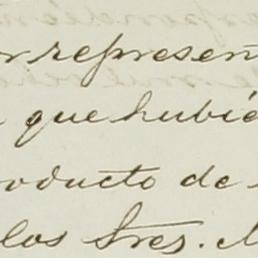 r represen
que hubié
oducto de
los Sres. M